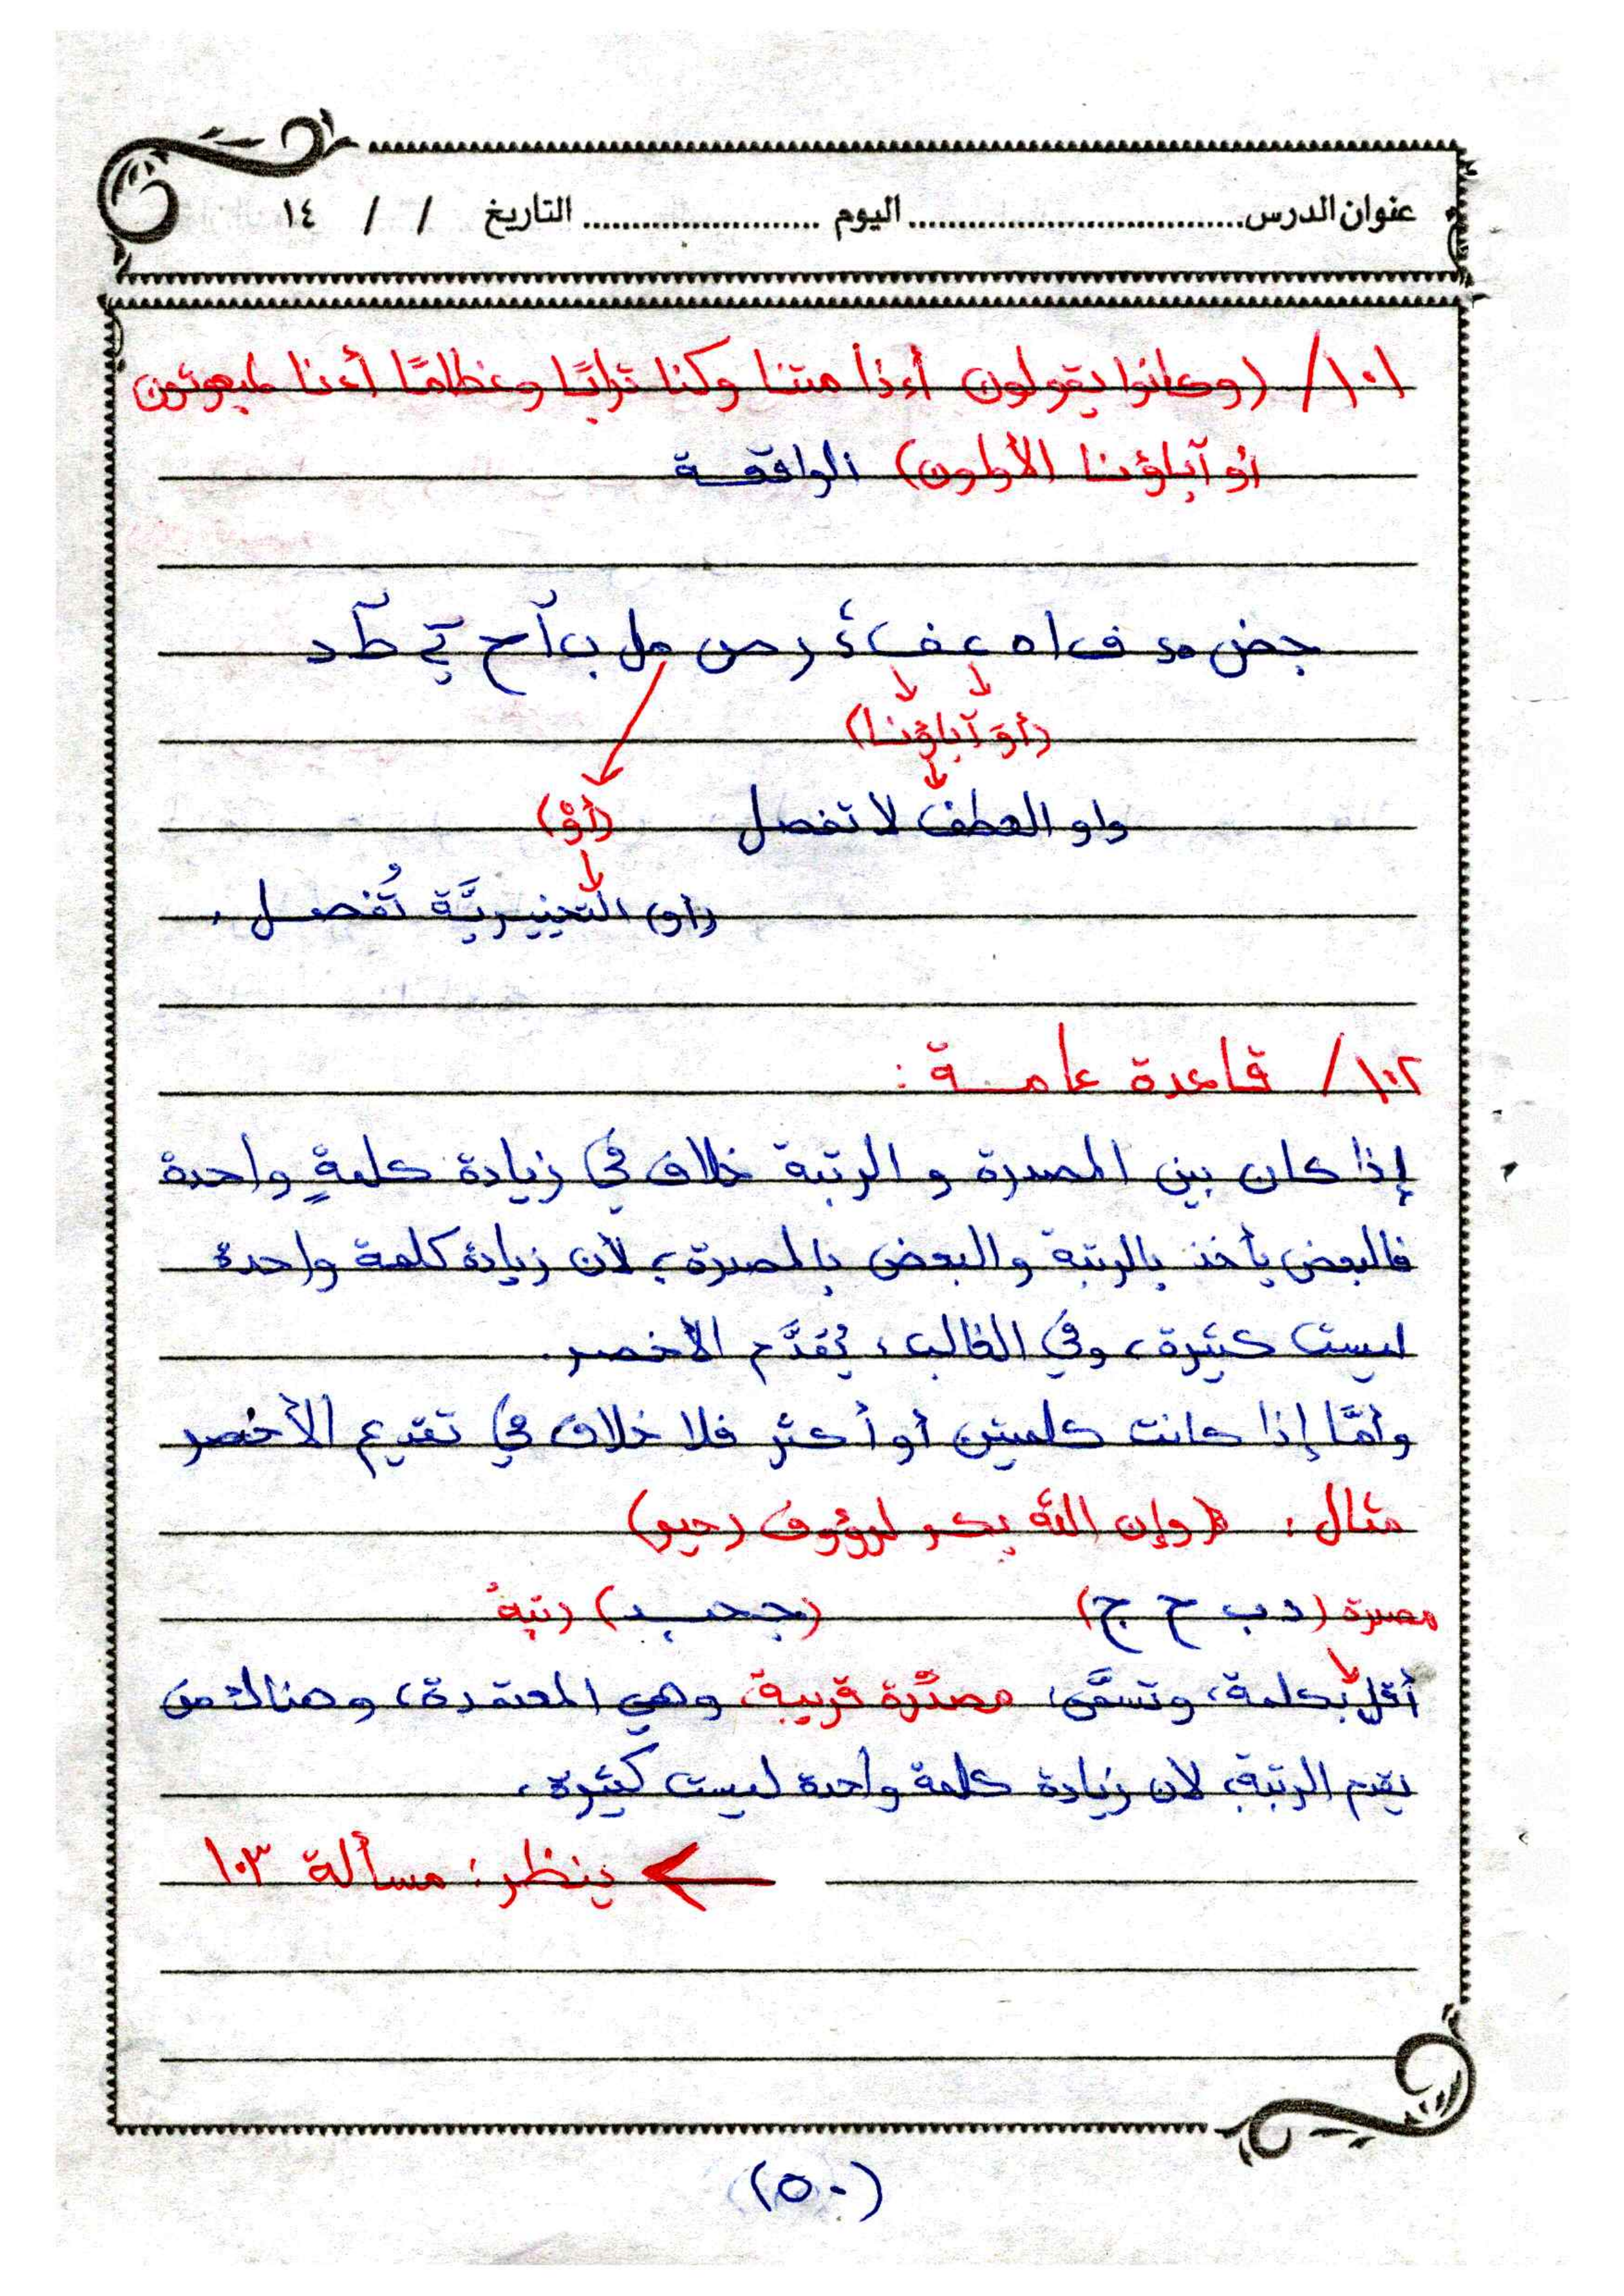 عنوان الدرس.................................اليوم ........................ التاريخ / / ١٤
١٠١/ (وكانوا يقولون أءذا متنا وكنا ترابًا وعظامًا أءنا لمبعوثون
أو آباؤنا الأولون) الواقعة
جض مد ف ا ه ع فأ ر ص مل ب آ ح تي ط د
(أوَ آباؤنا)
واو العطف لا تفصل (أوْ)
(أو) التخييريَّة تُفصل.
١٠٢/ قاعدة عامة :
إذا كان بين المصدرة و الرتبة خلاف في زيادة كلمةٍ واحدة
فالبعض يأخذ بالرتبة والبعض بالمصدرة، لأن زيادة كلمة واحدة
ليست كثيرة، وفي الغالب، يُقدَّم الأخصر.
وأمَّا إذا كانت كلمتين أو أكثر فلا خلاف في تقديم الأخصر
مثال: (وإن الله بكم لرؤوف رحيم)
مصدرة (د ب ح ج) (جحبد) رتبةُ
أقل بكلمة، وتسمَّى: مصدَّرة قريبة، وهي المعتمدة، وهناك من
يقدم الرتبة، لأن زيادة كلمة واحدة ليست كثيرة.
ينظر: مسألة ١٠٣
(٥٠)